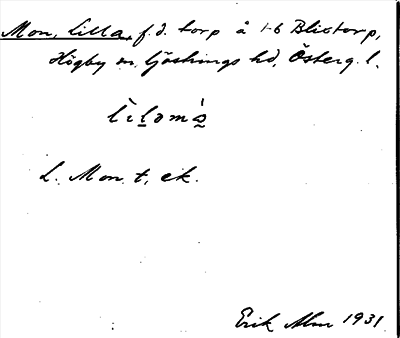 Mon, Lilla, f.d. torp å 1-6 Blistorp,
Högby sn. Göstrings hd, Österg. l.
L. Mon t. ek.
Erik Alm 1931